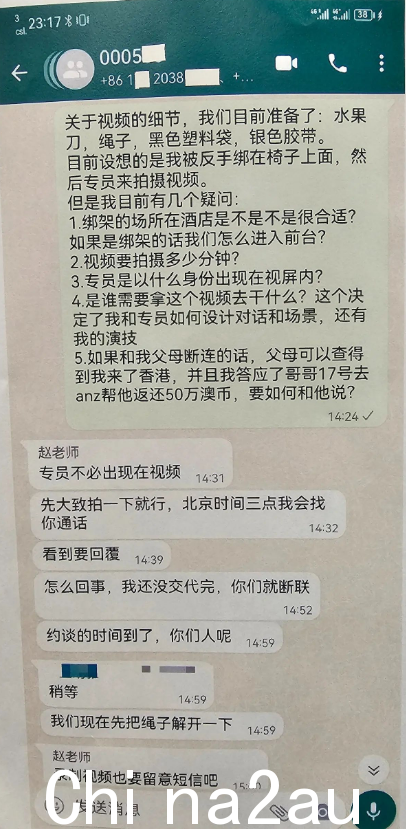 23:17
38
0005
+86 1 2038 , +...
关于视频的细节，我们目前准备了：水果
刀，绳子，黑色塑料袋，银色胶带。
目前设想的是我被反手绑在椅子上面，然
后专员来拍摄视频。
但是我目前有几个疑问：
1.绑架的场所在酒店是不是不是很合适？
如果是绑架的话我们怎么进入前台？
2.视频要拍摄多少分钟？
3.专员是以什么身份出现在视屏内？
4.是谁需要拿这个视频去干什么？这个决
定了我和专员如何设计对话和场景，还有
我的演技
5.如果和我父母断连的话，父母可以查得
到我来了香港，并且我答应了哥哥17号去
anz帮他返还50万澳币，要如何和他说？
14:24
赵老师
专员不必出现在视频 14:31
先大致拍一下就行，北京时间三点我会找
你通话 14:32
看到要回覆 14:39
怎么回事，我还没交代完，你们就断联
14:52
约谈的时间到了，你们人呢 14:59
稍等 14:59
我们现在先把绳子解开一下 14:59
赵老师
视频也要留意短信吧
Chi na2au